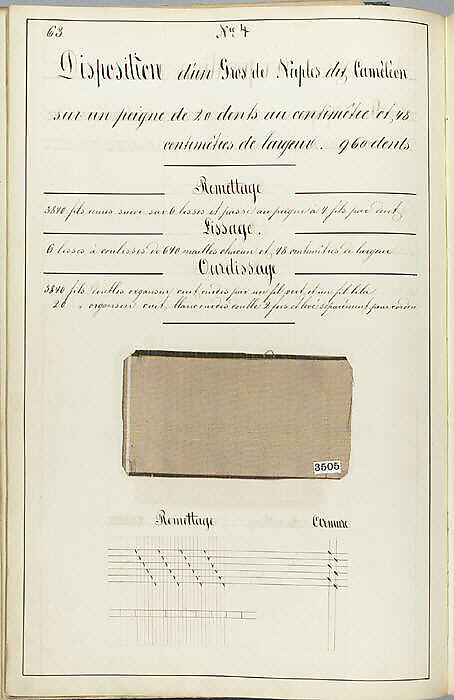 63
No 4
Disposition d'un Gros de Naples dit Caméléon
sur un peigne de 20 dents au centimètre et 48
centimètres de largeur. 960 dents
Remettage
3840 fils remis suivis sur 6 lisses et passé au peigne à 4 fils par dent
Lissage.
6 lisses à coulisses de 640 mailles chacune et 48 centimètres de largeur
Ourdissage
3840 fils doubles organsin cuit ourdis par un fil vert et un fil lilas
20 " organsin cuit blanc ourdis double 2 fois et levé séparément pour cordon
3505
Remettage
Armure